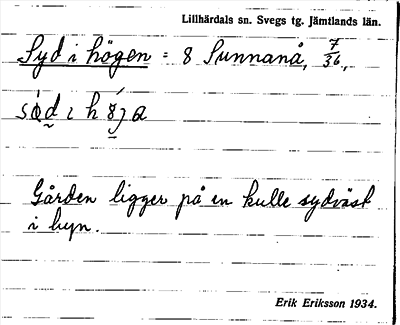 Lillhärdals sn. Svegs tg. Jämtlands län.
Syd i högen = 8 Sunnanå, 7/36,
Gården ligger på en kulle sydväst
i byn.
Erik Eriksson 1934.